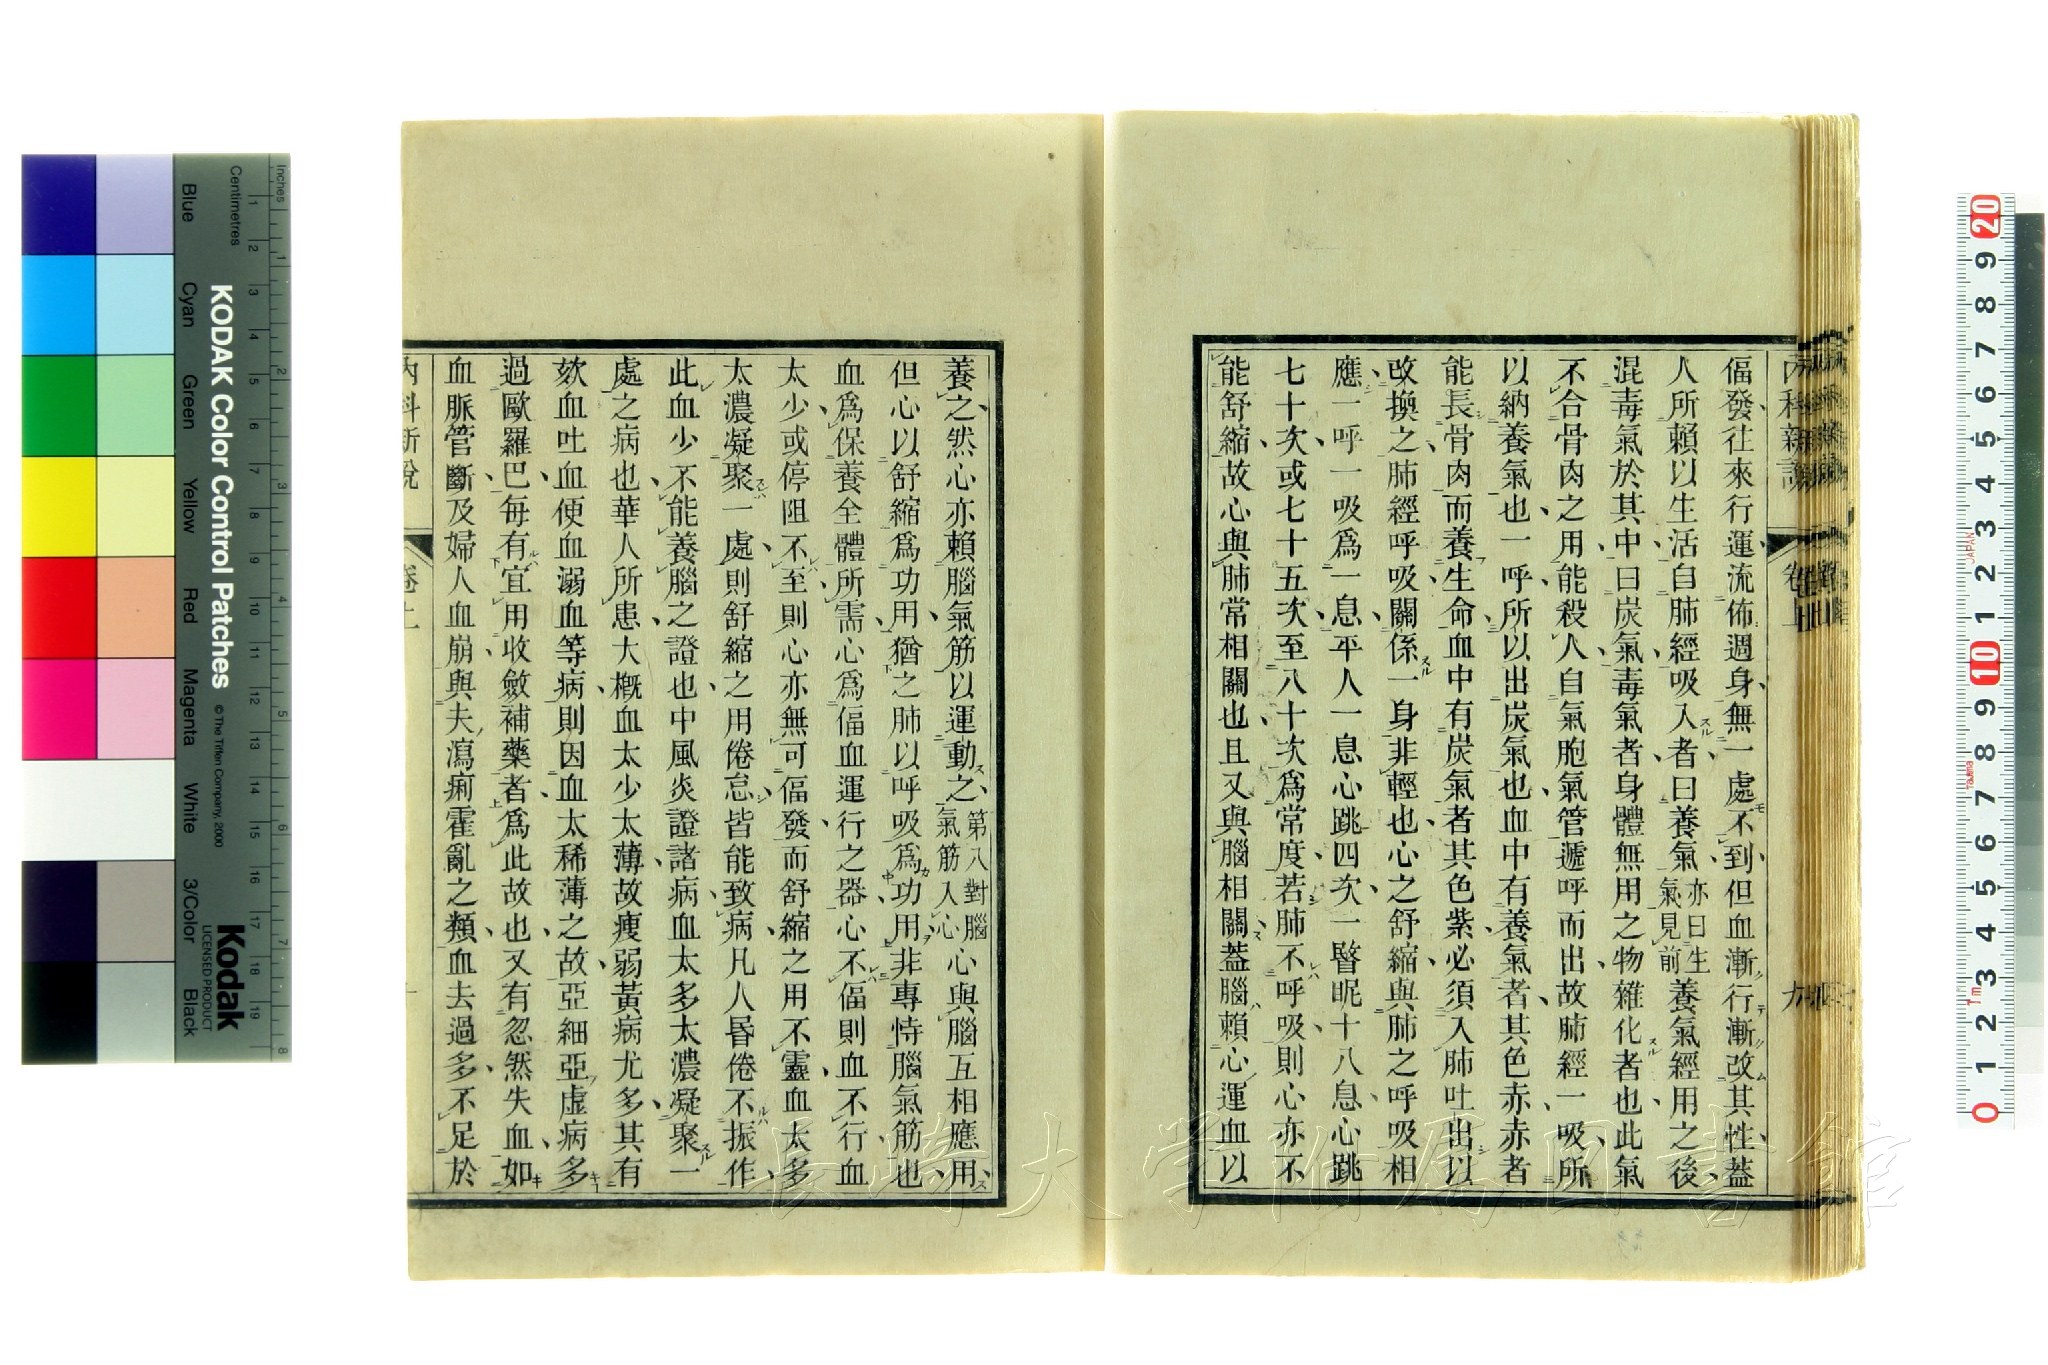 偪發往來行運流佈週身無一處不到但血漸行漸改其性蓋
人所賴以生活自肺經吸入者曰養氣亦曰生氣見前養氣經用之後
混毒氣於其中曰炭氣毒氣者身體無用之物雜化者也此氣
不合骨肉之用能殺人自氣胞氣管遞呼而出故肺經一吸所
以納養氣也一呼所以出炭氣也血中有養氣者其色赤赤者
能長骨肉而養生命血中有炭氣者其色紫必須入肺吐出以
改換之肺經呼吸關係一身非輕也心之舒縮與肺之呼吸相
應一呼一吸爲一息平人一息心跳四次一瞖眤十八息心跳
七十次或七十五次至八十次爲常度若肺不呼吸則心亦不
能舒縮故心與肺常相關也且又與腦相關蓋腦賴心運血以
養之然心亦賴腦氣筋以運動之第八對腦氣筋入心心與腦互相應用
但心以舒縮爲功用猶之肺以呼吸爲功用非專恃腦氣筋也
血爲保養全體所需心爲偪血運行之器心不偪則血不行血
太少或停阻不至則心亦無可偪發而舒縮之用不靈血太多
太濃凝聚一處則舒縮之用倦怠皆能致病凡人昬倦不振作
此血少不能養腦之證也中風炎證諸病血太多太濃凝聚一
處之病也華人所患大槪血太少太薄故瘦弱黃病尤多其有
欬血吐血便血溺血等病則因血太稀薄之故亞細亞虛病多
過歐羅巴每有宜用收斂補藥者爲此故也又有忽然失血如
血脈管斷及婦人血崩與夫瀉痢霍亂之類血去過多不足於
內科新說 卷上
內科新說 卷上 九
長崎大学附属図書館
KODAK Color Control Patches
© The Tiffen Company, 2000
Kodak
LICENSED PRODUCT
Inches
Centimetres
Blue
Cyan
Green
Yellow
Red
Magenta
White
3/Color
Black
1 2 3 4 5 6 7 8 9 10 11 12 13 14 15 16 17 18 19
1 2 3 4 5 6 7 8
0 1 2 3 4 5 6 7 8 9 10 1 2 3 4 5 6 7 8 9 20
JAPAN
1m